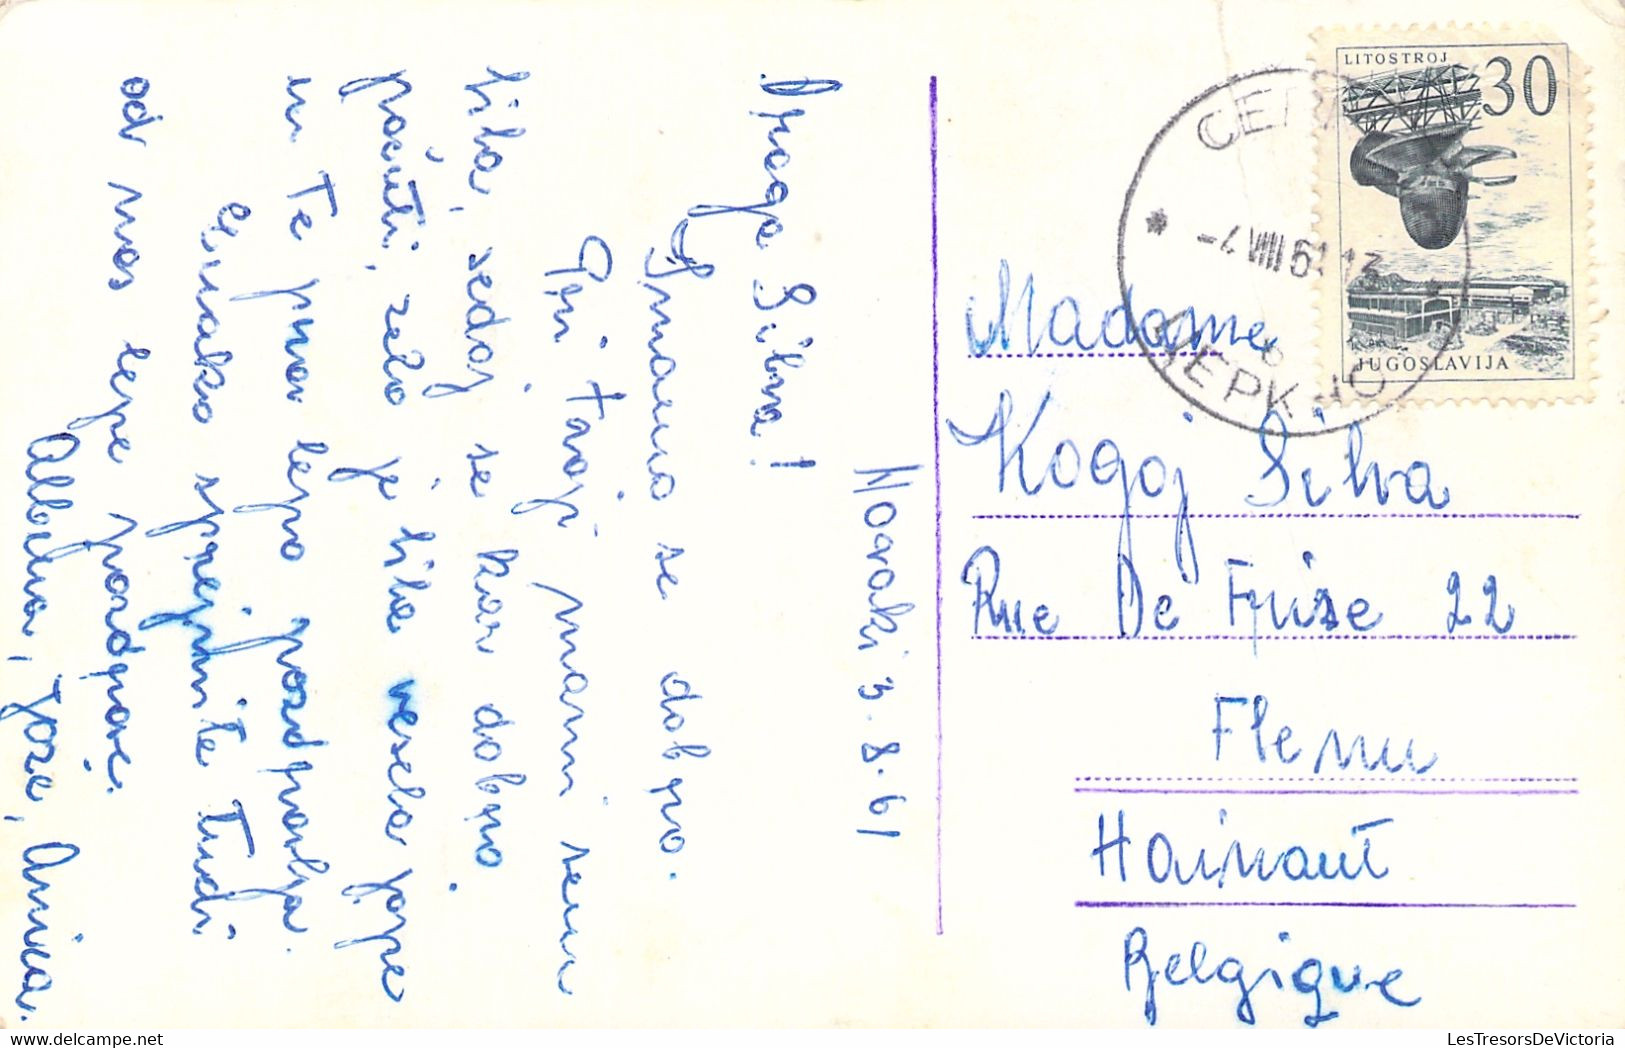 Novaki 3. 8. 61
Draga Silva!
Imamo se dobro.
Pri tvoji mami sem
bila, sedaj se kar dobro
počuti, zelo je bila vesela jope
in Te prav lepo pozdravlja.
Enako sprejmite tudi
od nas lepe pozdrave.
Albina, Jože, Anica.
LITOSTROJ
30
JUGOSLAVIJA
-4 VIII 61 13
ЦЕРКНО
Madame
Kogoj Silva
Rue De Frize 22
Flenu
Hainaut
Belgique
LesTresorsDeVictoria